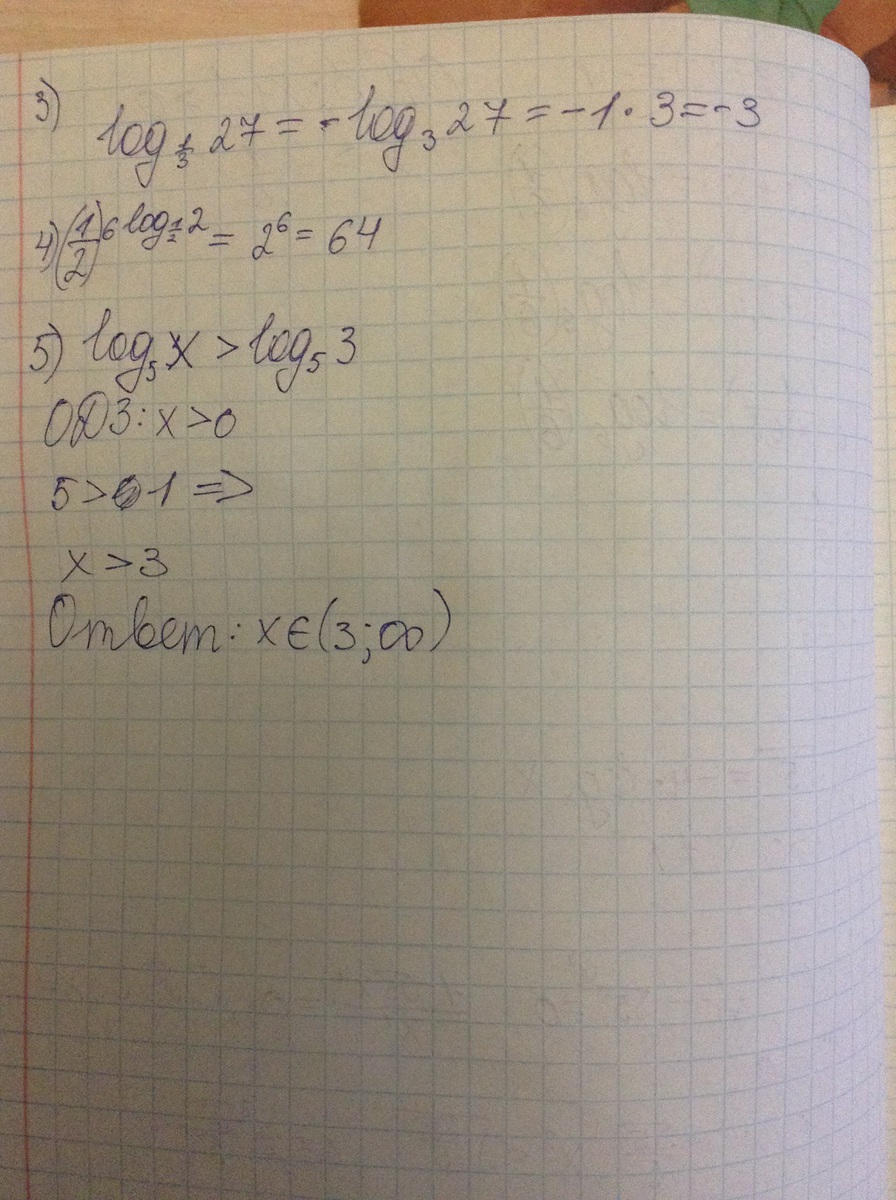 3) log_{1/3} 27 = -log_3 27 = -1 · 3 = -3
4) (1/2)^{6 log_{1/2} 2} = 2^6 = 64
5) log_5 x > log_5 3
ОДЗ: x > 0
5 > 1 =>
x > 3
Ответ: x ∈ (3; ∞)